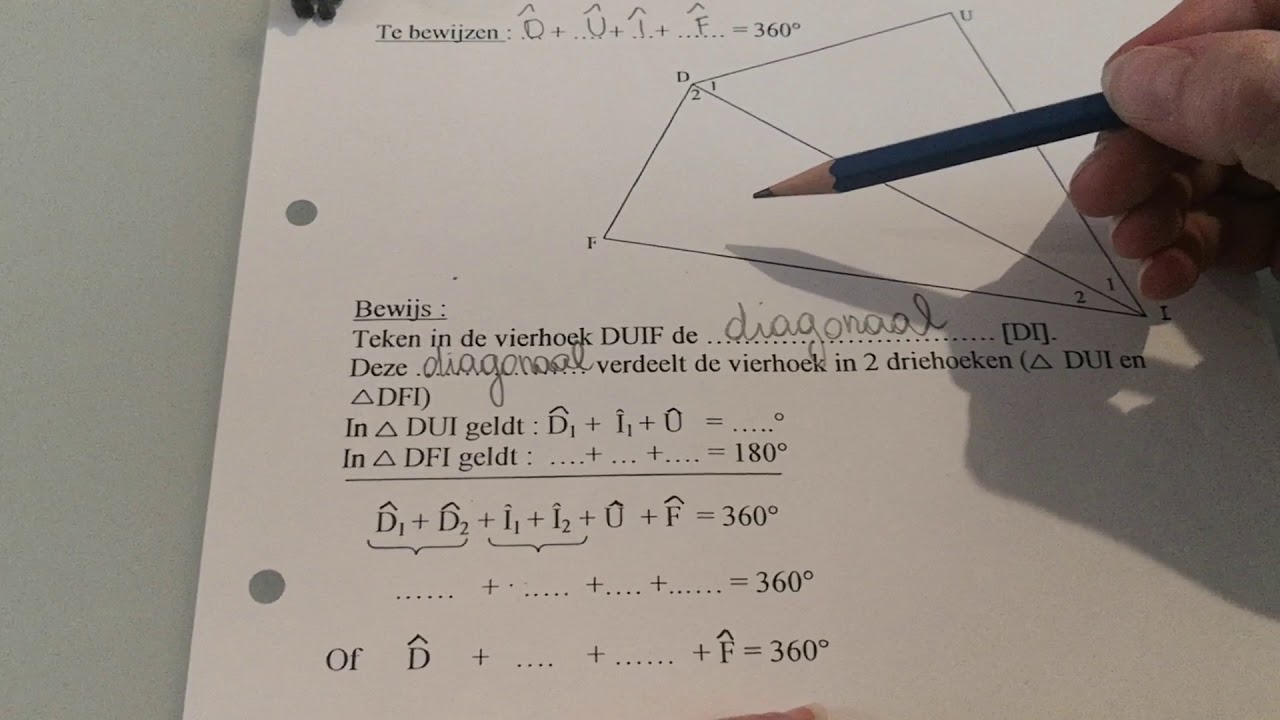 Te bewijzen : D̂ + Û + Î + F̂ = 360°
U
D
2 1
F
1
2
I
Bewijs :
Teken in de vierhoek DUIF de diagonaal [DI].
Deze diagonaal verdeelt de vierhoek in 2 driehoeken (△ DUI en
△DFI)
In △ DUI geldt : D̂₁ + Î₁ + Û = .....°
In △ DFI geldt : ....+ ... +.... = 180°
D̂₁ + D̂₂ + Î₁ + Î₂ + Û + F̂ = 360°
...... + ...... +.... +...... = 360°
Of D̂ + .... + ...... + F̂ = 360°